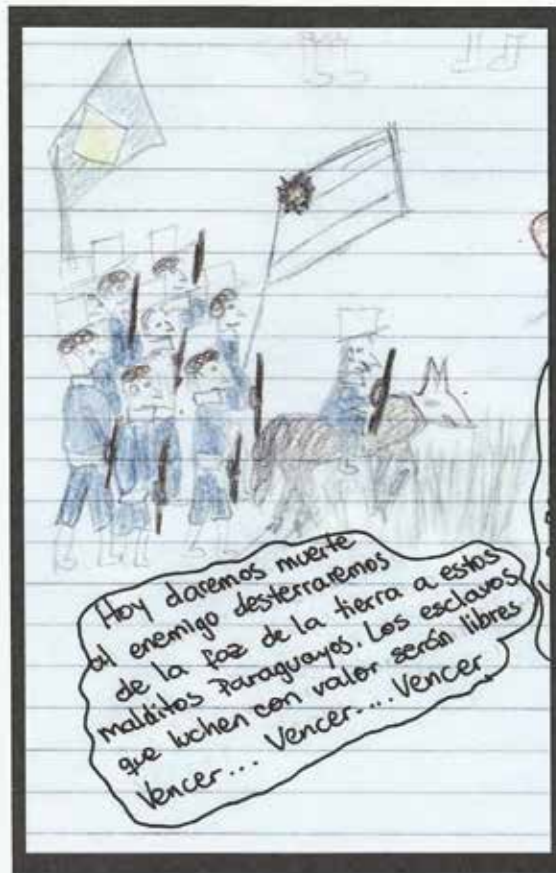 Hoy daremos muerte
al enemigo desterraremos
de la faz de la tierra a estos
malditos Paraguayos. Los esclavos
que luchen con valor serán libres
Vencer... Vencer.... Vencer